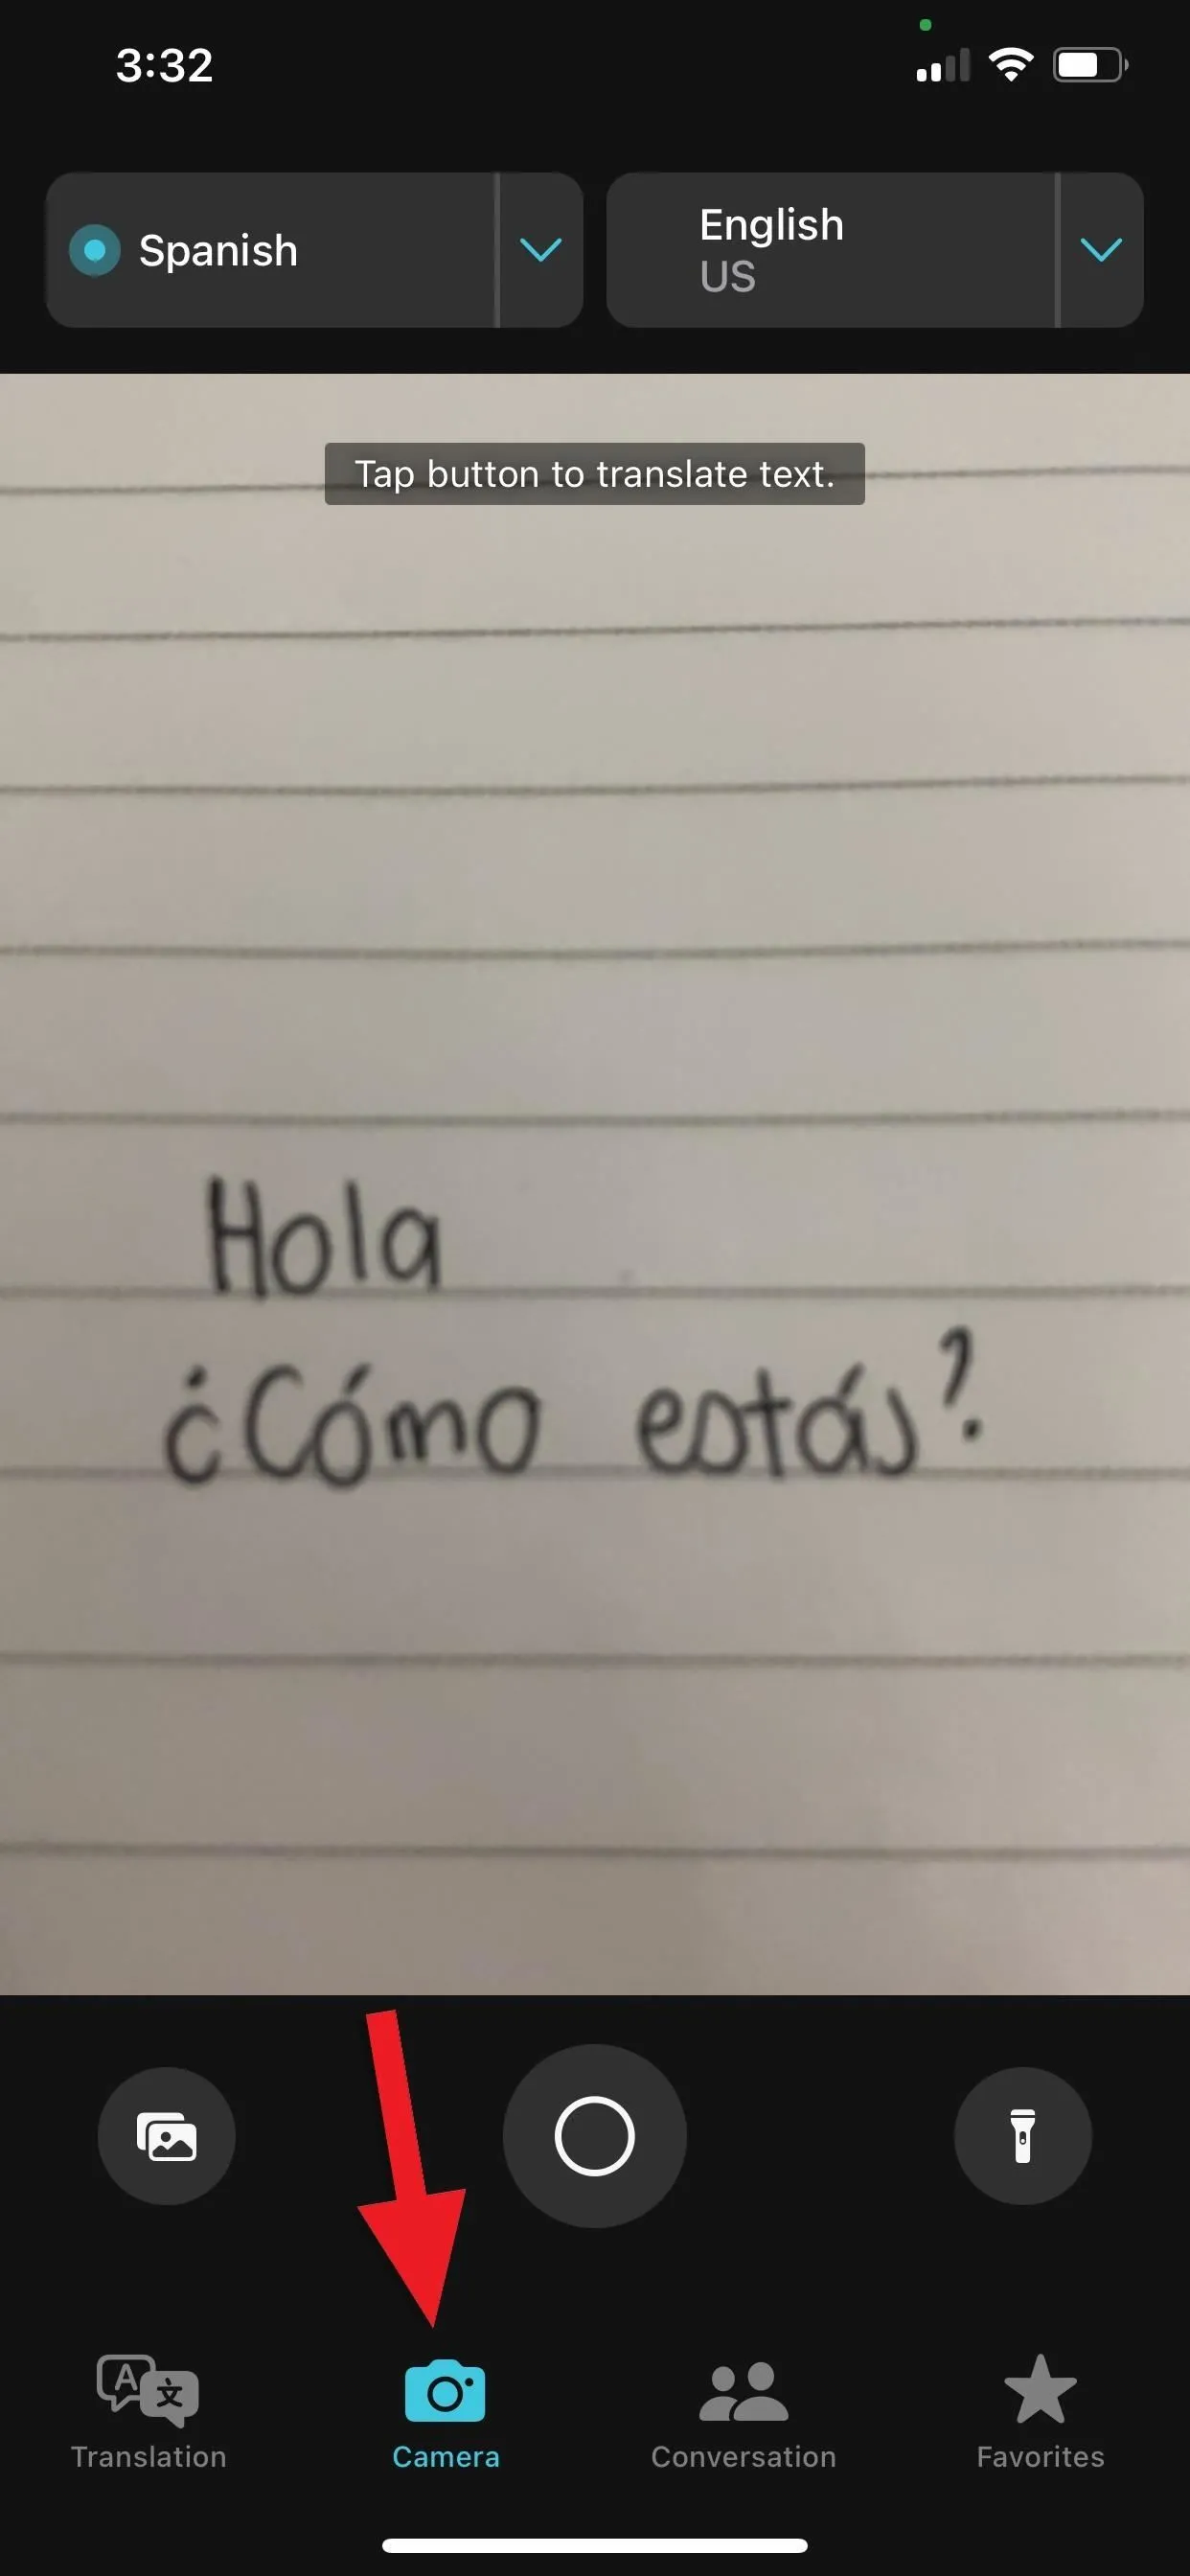 3:32
Spanish
English
US
Tap button to translate text.
Hola
¿Cómo estás?
A 文
Translation
Camera
Conversation
Favorites